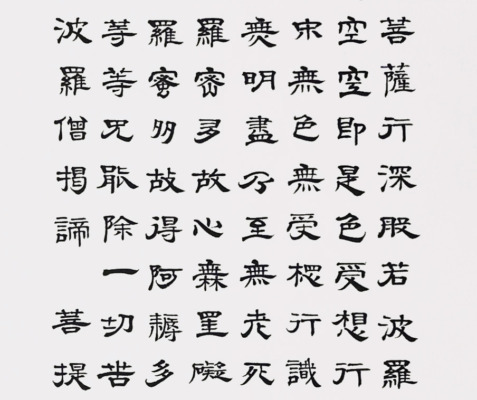 菩薩行深般若波羅
空空即是色受想行
無色無受想行識
無明盡乃至無老死
羅密多故心無罣礙
羅蜜多故得阿耨多
等等咒能除一切苦
波羅僧揭諦 菩提